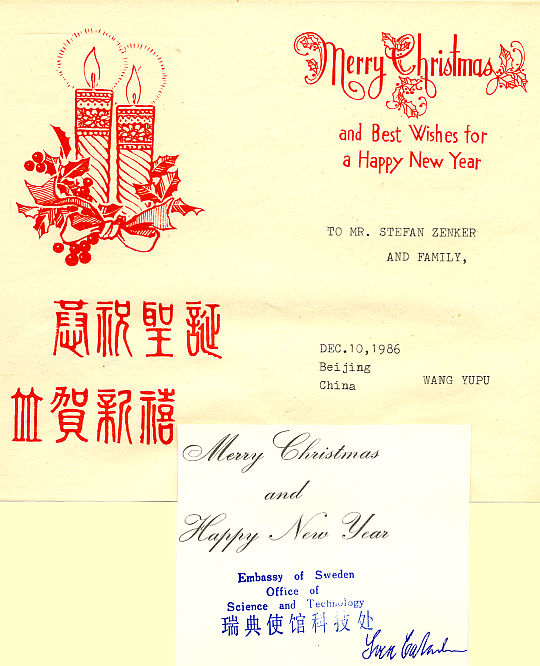 Merry Christmas
and Best Wishes for
a Happy New Year
TO MR. STEFAN ZENKER
AND FAMILY,
恭祝聖誕
並賀新禧
DEC.10,1986
Beijing
China
WANG YUPU
Merry Christmas
and
Happy New Year
Embassy of Sweden
Office of
Science and Technology
瑞典使馆科技处